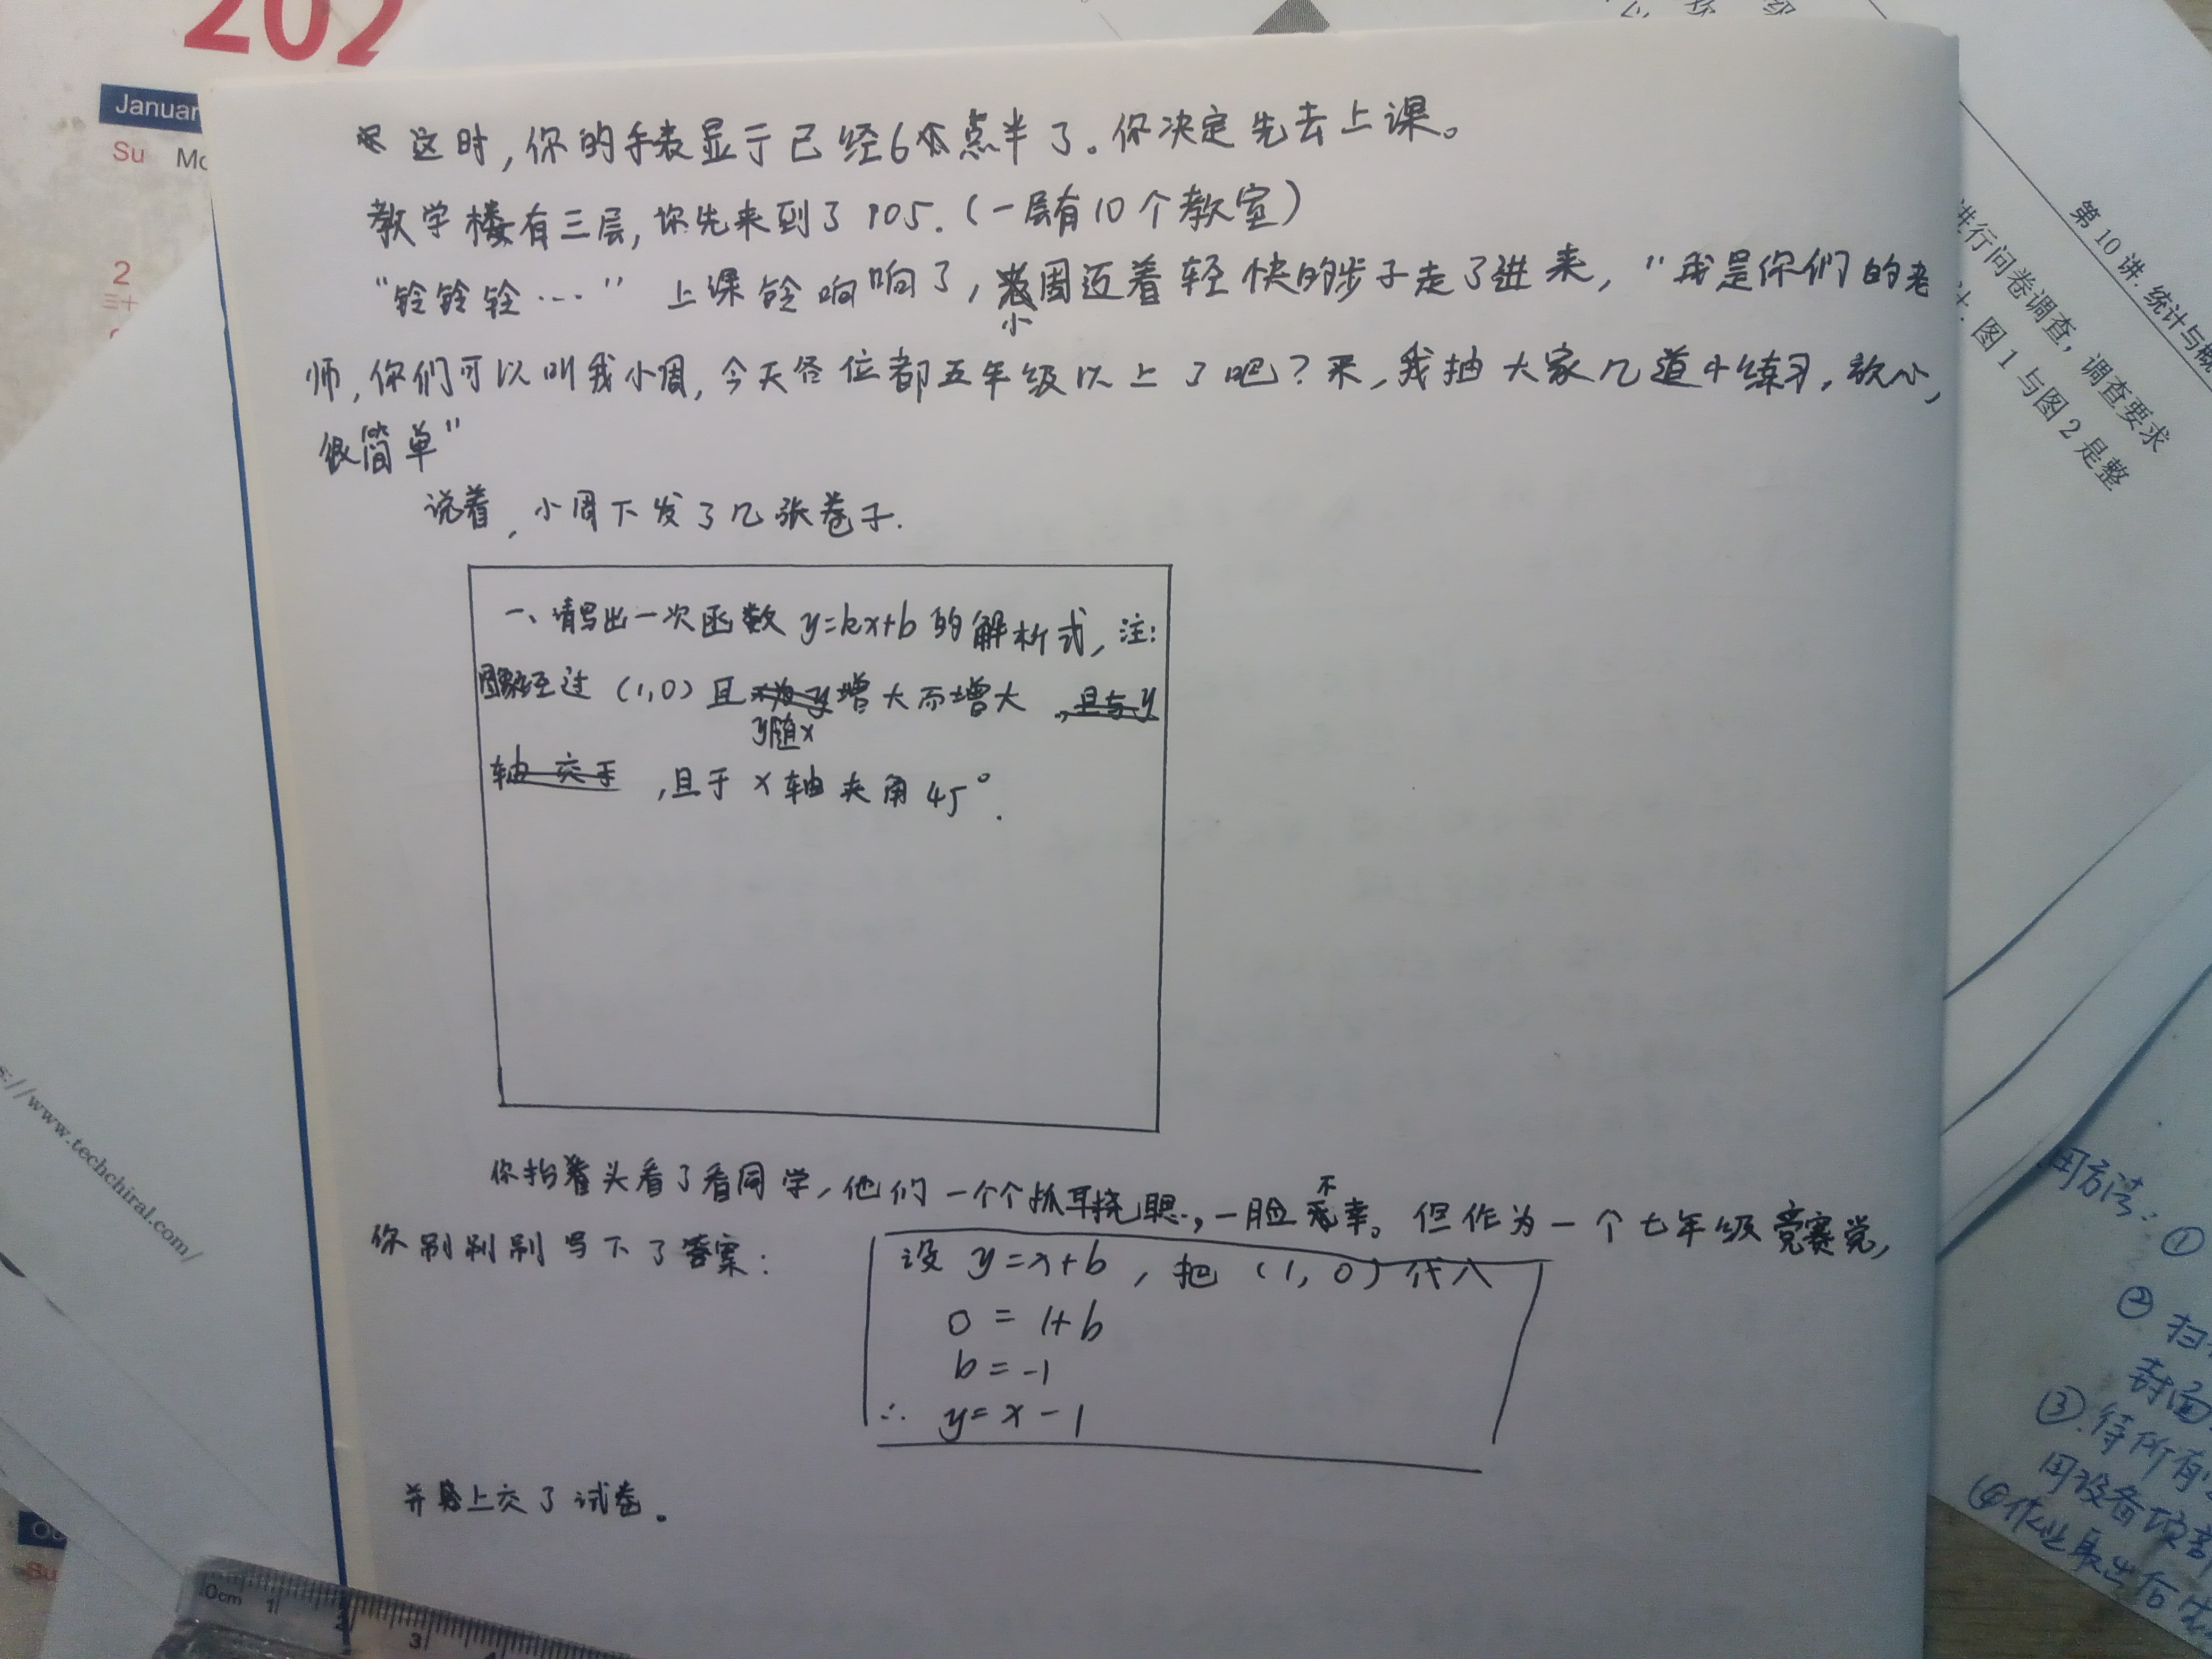 202
Januar
Su Mo
2
第10讲. 统计与概
进行问卷调查, 调查要求
计. 图1与图2是整
这时,你的手表显于已经6点半了。你决定先去上课。
教学楼有三层,你先来到了105.(一层有10个教室)
“铃铃铃…” 上课铃响响了,小周迈着轻快的步子走了进来,“我是你们的老
师,你们可以叫我小周,今天各位都五年级以上了吧?来,我抽大家几道小练习,放心,
很简单”
说着,小周下发了几张卷子.
一、请写出一次函数 y=kx+b 的解析式,注:
图象经过 (1,0) 且y随x增大而增大 ,且与y
轴交于 ,且于 x 轴夹角 45°.
你抬着头看了看同学,他们一个个抓耳挠腮,一脸不幸。但作为一个七年级竞赛党,
你刷刷刷写下了答案:
设 y=x+b ,把 (1,0) 代入
0 = 1+b
b = -1
∴ y= x-1
并上交了试卷。
s://www.techchiral.com/
用方法: ①
② 扫
封面
③.待所有
用设备
④作业取出后
Su
0cm 1 2 3